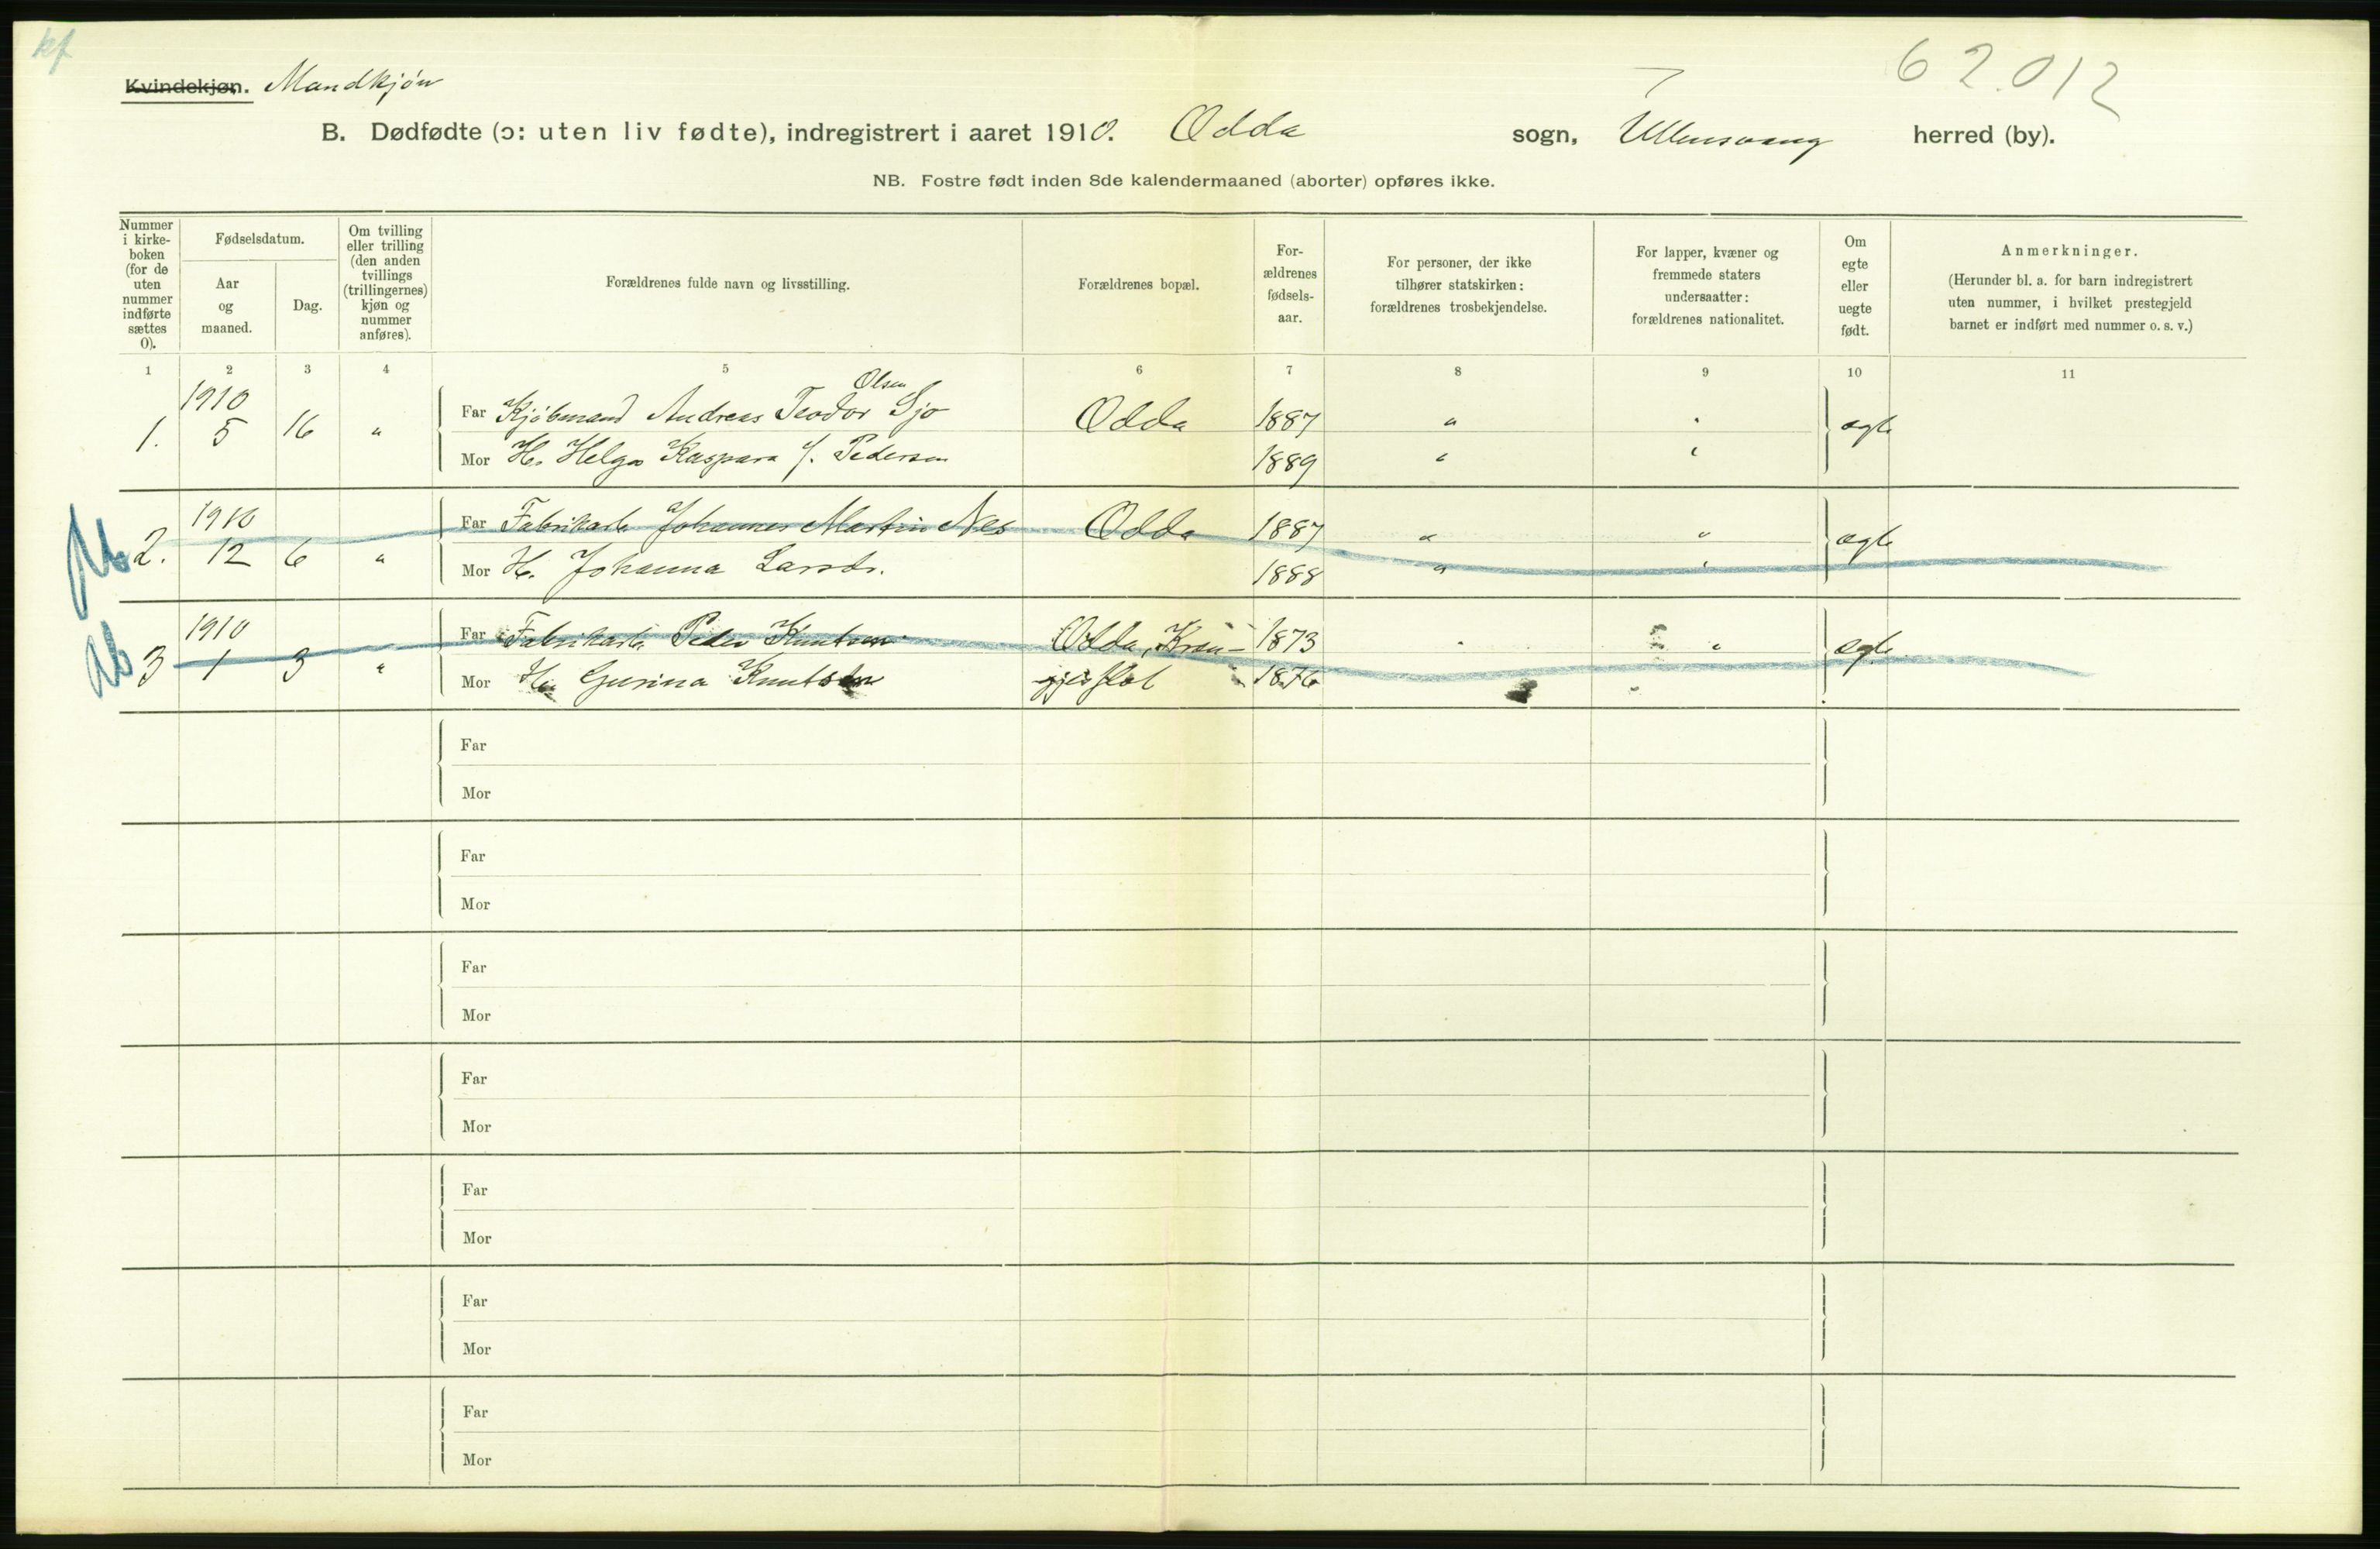 kf
62.012
Kvindekjøn. Mandkjøn
B. Dødfødte (ɔ: uten liv fødte), indregistrert i aaret 1910. Odda sogn, Ullensvang herred (by).
NB. Fostre født inden 8de kalendermaaned (aborter) opføres ikke.
Nummer i kirke-boken (for de uten nummer indførte sættes 0).
Fødselsdatum.
Aar og maaned.
Dag.
Om tvilling eller trilling (den anden tvillings (trillingernes) kjøn og nummer anføres).
Forældrenes fulde navn og livsstilling.
Forældrenes bopæl.
For-ældrenes fødsels-aar.
For personer, der ikke tilhører statskirken: forældrenes trosbekjendelse.
For lapper, kvæner og fremmede staters undersaatter: forældrenes nationalitet.
Om egte eller uegte født.
Anmerkninger.
(Herunder bl. a. for barn indregistrert uten nummer, i hvilket prestegjeld barnet er indført med nummer o. s. v.)
1 2 3 4 5 6 7 8 9 10 11
Olsen
1. 1910 5 16 " Far Kjøbmand Andreas Teodor Sjo Odda 1887 " " egte
Mor H. Helga Kaspara f. Pedersen 1889 " "
2. 1910 12 6 " Far Fabrikarb. Johannes Martin Nes Odda 1887 " " egte
Mor H. Johanna Larsdr. 1888 " "
3 1910 1 3 " Far Fabrikarb. Peder Knutsen Odda, 1873 " " egte
Mor Hu Gurina Knutsen 1876
Far
Mor
Far
Mor
Far
Mor
Far
Mor
Far
Mor
Far
Mor
Far
Mor